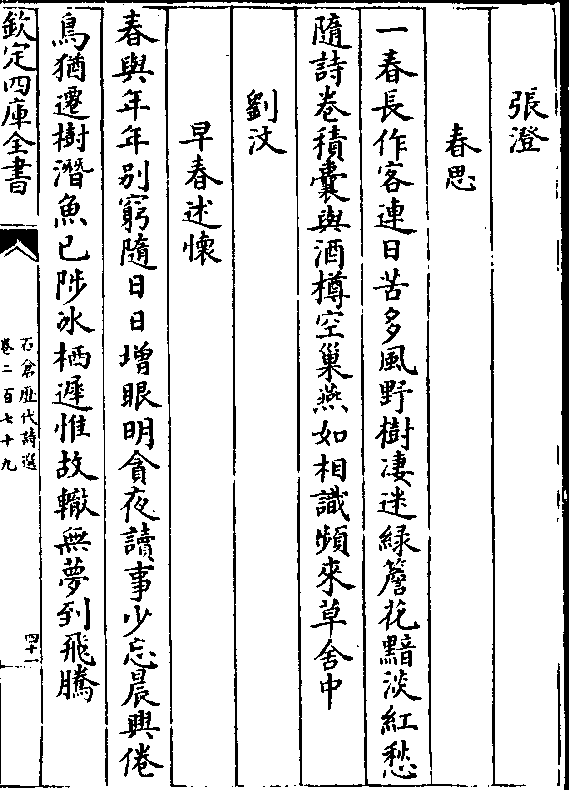 張澄
春思
一春長作客連日苦多風野樹凄迷緑簷花黯淡紅愁
隨詩卷積囊與酒樽空巢燕如相識頻來草舍中
劉汶
早春述懷
春與年年別窮隨日日增眼明貪夜讀事少忘晨興倦
鳥猶遷樹潛魚已陟冰栖遲惟故轍無夢到飛騰
欽定四庫全書
石倉歴代詩選
卷二百七十九
四十一